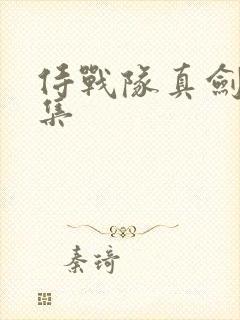 侍戰隊真劍
集
秦琦